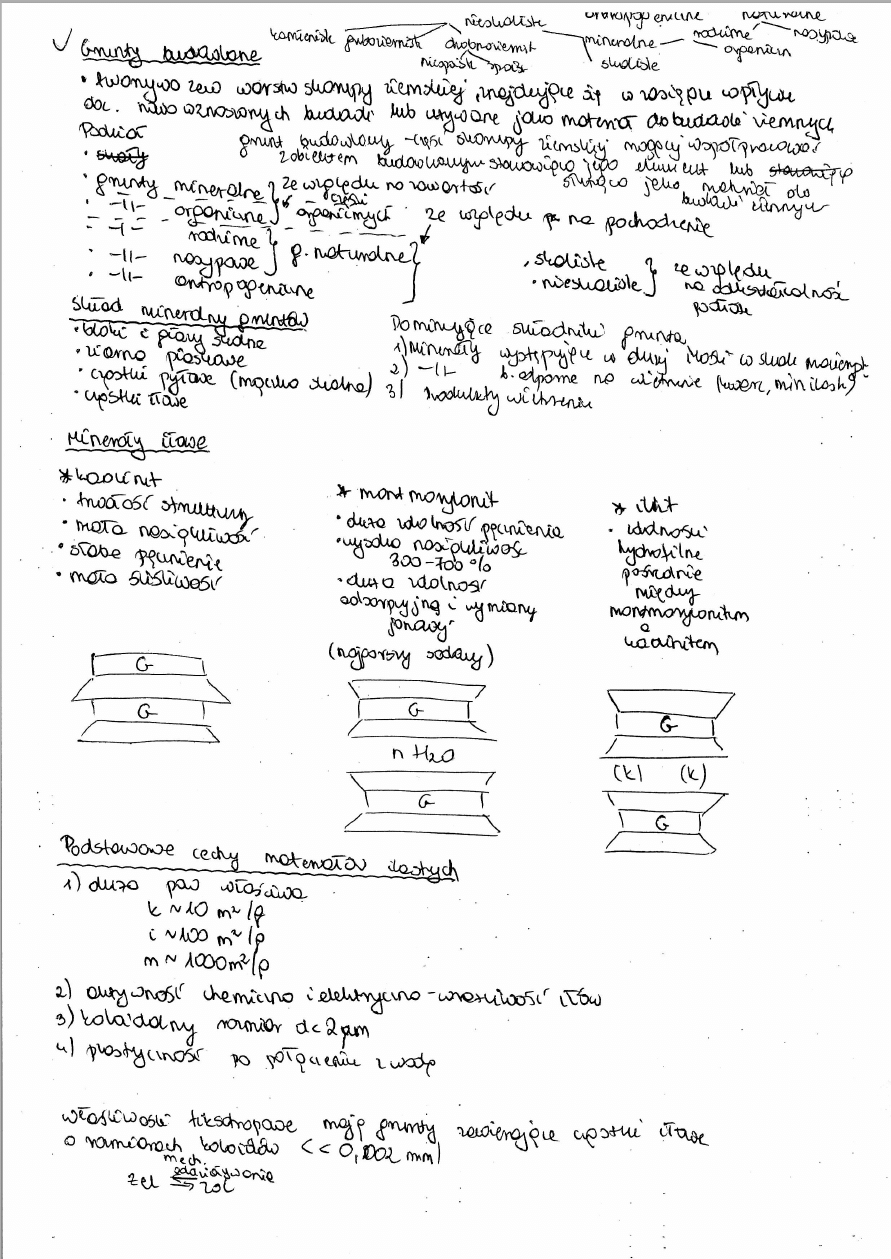 nieskaliste
antropogeniczne
naturalne
kamieniste gruboziarniste
drobnoziarnist
mineralne
rodzime
nasypowe
organiczn
niespoiste spoiste
skaliste
✓ Grunty budowlane
• tworzywo zew warstw skorupy ziemskiej, znajdujące się w zasięgu wpływu
doc. nowo wznoszonych budowli lub używane jako materiał do budowli ziemnych
Podział
grunt budowlany - część skorupy ziemskiej mogącej współpracować
• skały
z obiektem budowlanym stanowiąca jego element lub
służąca jako materiał do
budowli ziemnych
• grunty mineralne } ze względu na zawartość
-||- organiczne części organicznych
-||- rodzime
• -||- nasypowe } g. naturalne
• -||- antropogeniczne
ze względu na pochodzenie
• skaliste
• nieskaliste } ze względu
na odkształcalność
podłoża
Skład mineralny gruntów
• bloki i głazy skalne
• ziarna piaskowe
• cząstki pyłowe (mączka skalna)
• cząstki iłowe
Dominujące składniki gruntu
1) Minerały występujące w dużej ilości w skale macierzyst
2) -||- b. odporne na wietrzenie (kwarc, min ilaste)
3) produkty wietrzenia
Minerały iłowe
* kaolinit
• trwałość struktury
• mała nasiąkliwość
• słabe pęcznienie
• mała ściśliwość
* montmorylonit
• duża zdolność pęcznienia
• wysoka nasiąkliwość
300-700 %
• duża zdolność
adsorpcyjna i wymiany
jonowej
(najgorszy sodowy)
* illit
• zdolności
hydrofilne
pośrednie
między
montmorylonitem
a
kaolinitem
G
G
G
n H2O
G
G
(K) (K)
G
Podstawowe cechy materiałów ilastych
1) duża pow właściwa
k ~ 10 m²/g
i ~ 100 m²/g
m ~ 1000 m²/g
2) aktywność chemiczno i elektryczno - wrażliwość iłów
3) koloidalny rozmiar d < 2 μm
4) plastyczność po połączeniu z wodą
właściwości tiksotropowe mają grunty zawierające cząstki iłowe
o rozmiarach koloidów (< 0,002 mm)
mech.
oddziaływanie
żel ⇆ zol